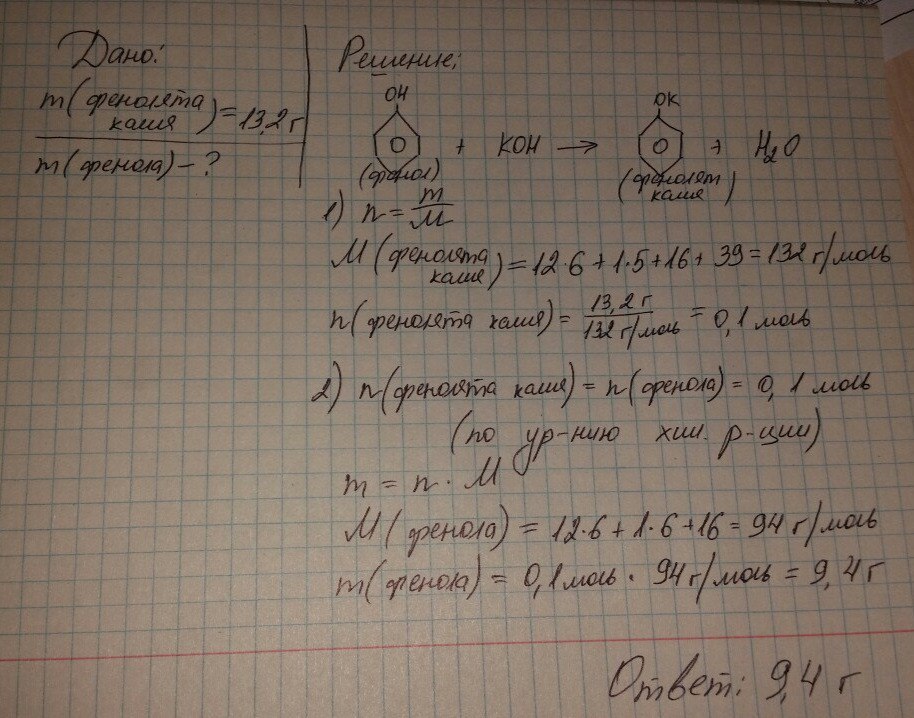 Дано:
m(фенолята калия) = 13,2 г
m(фенола) - ?
Решение:
OH OK
+ KOH → + H₂O
(фенол) (фенолят калия)
1) n = m/M
M(фенолята калия) = 12·6 + 1·5 + 16 + 39 = 132 г/моль
n(фенолята калия) = 13,2 г/132 г/моль = 0,1 моль
2) n(фенолята калия) = n(фенола) = 0,1 моль
(по ур-нию хим. р-ции)
m = n · M
M(фенола) = 12·6 + 1·6 + 16 = 94 г/моль
m(фенола) = 0,1 моль · 94 г/моль = 9,4 г
Ответ: 9,4 г